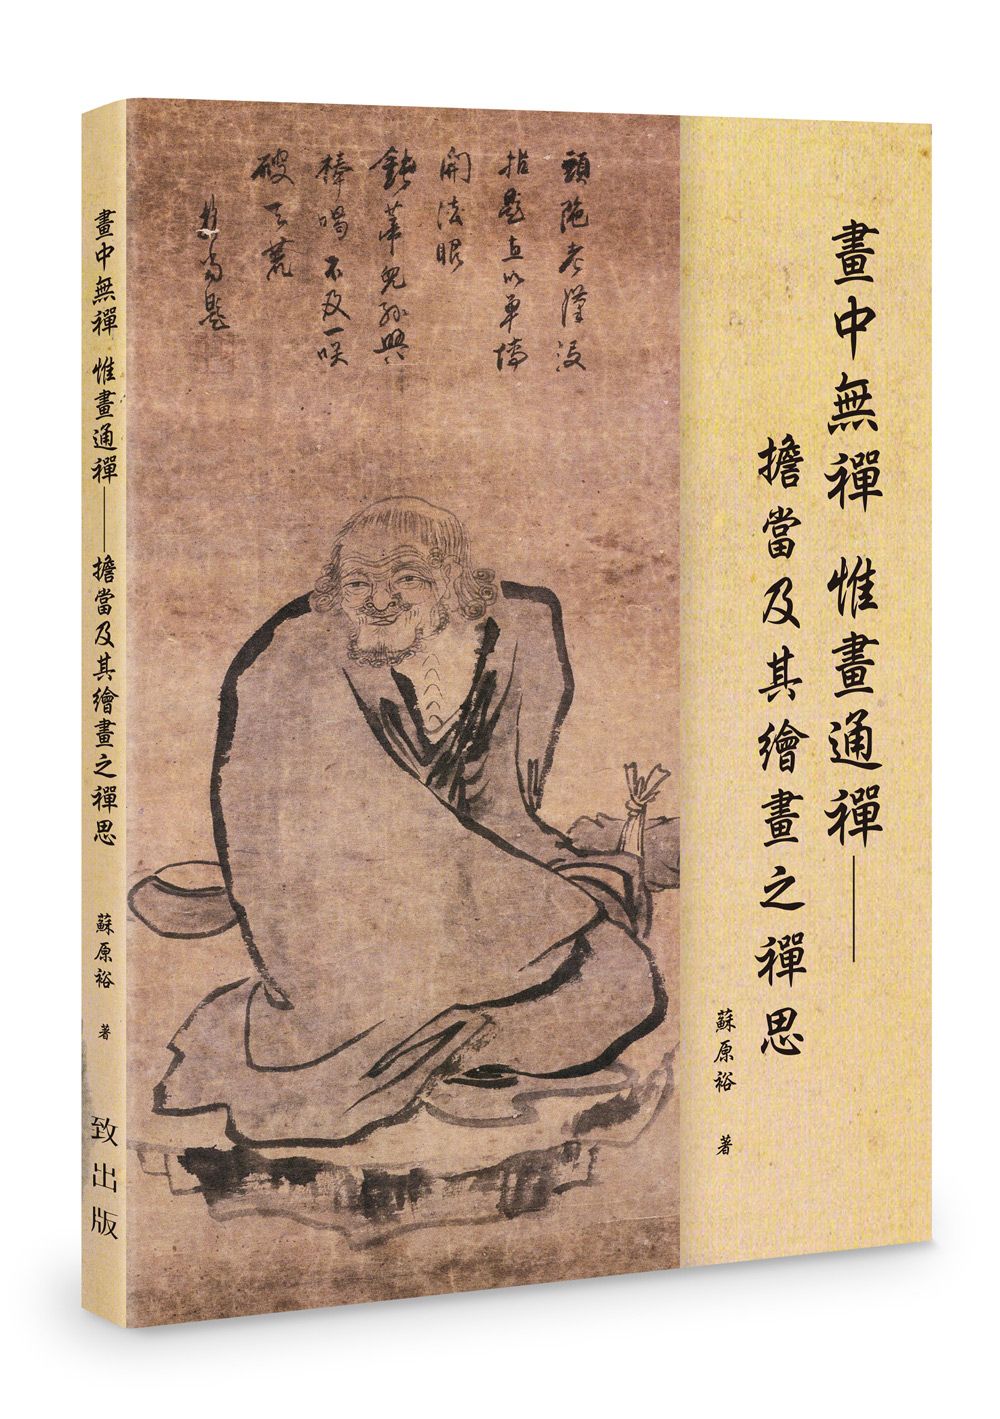 畫中無禪 惟畫通禪——
擔當及其繪畫之禪思
蘇原裕 著
頭陀老漢沒
指 直以單傳
開法眼
兒孫興
棒喝不及一咲
破天荒
畫中無禪 惟畫通禪——擔當及其繪畫之禪思 蘇原裕 著 致出版